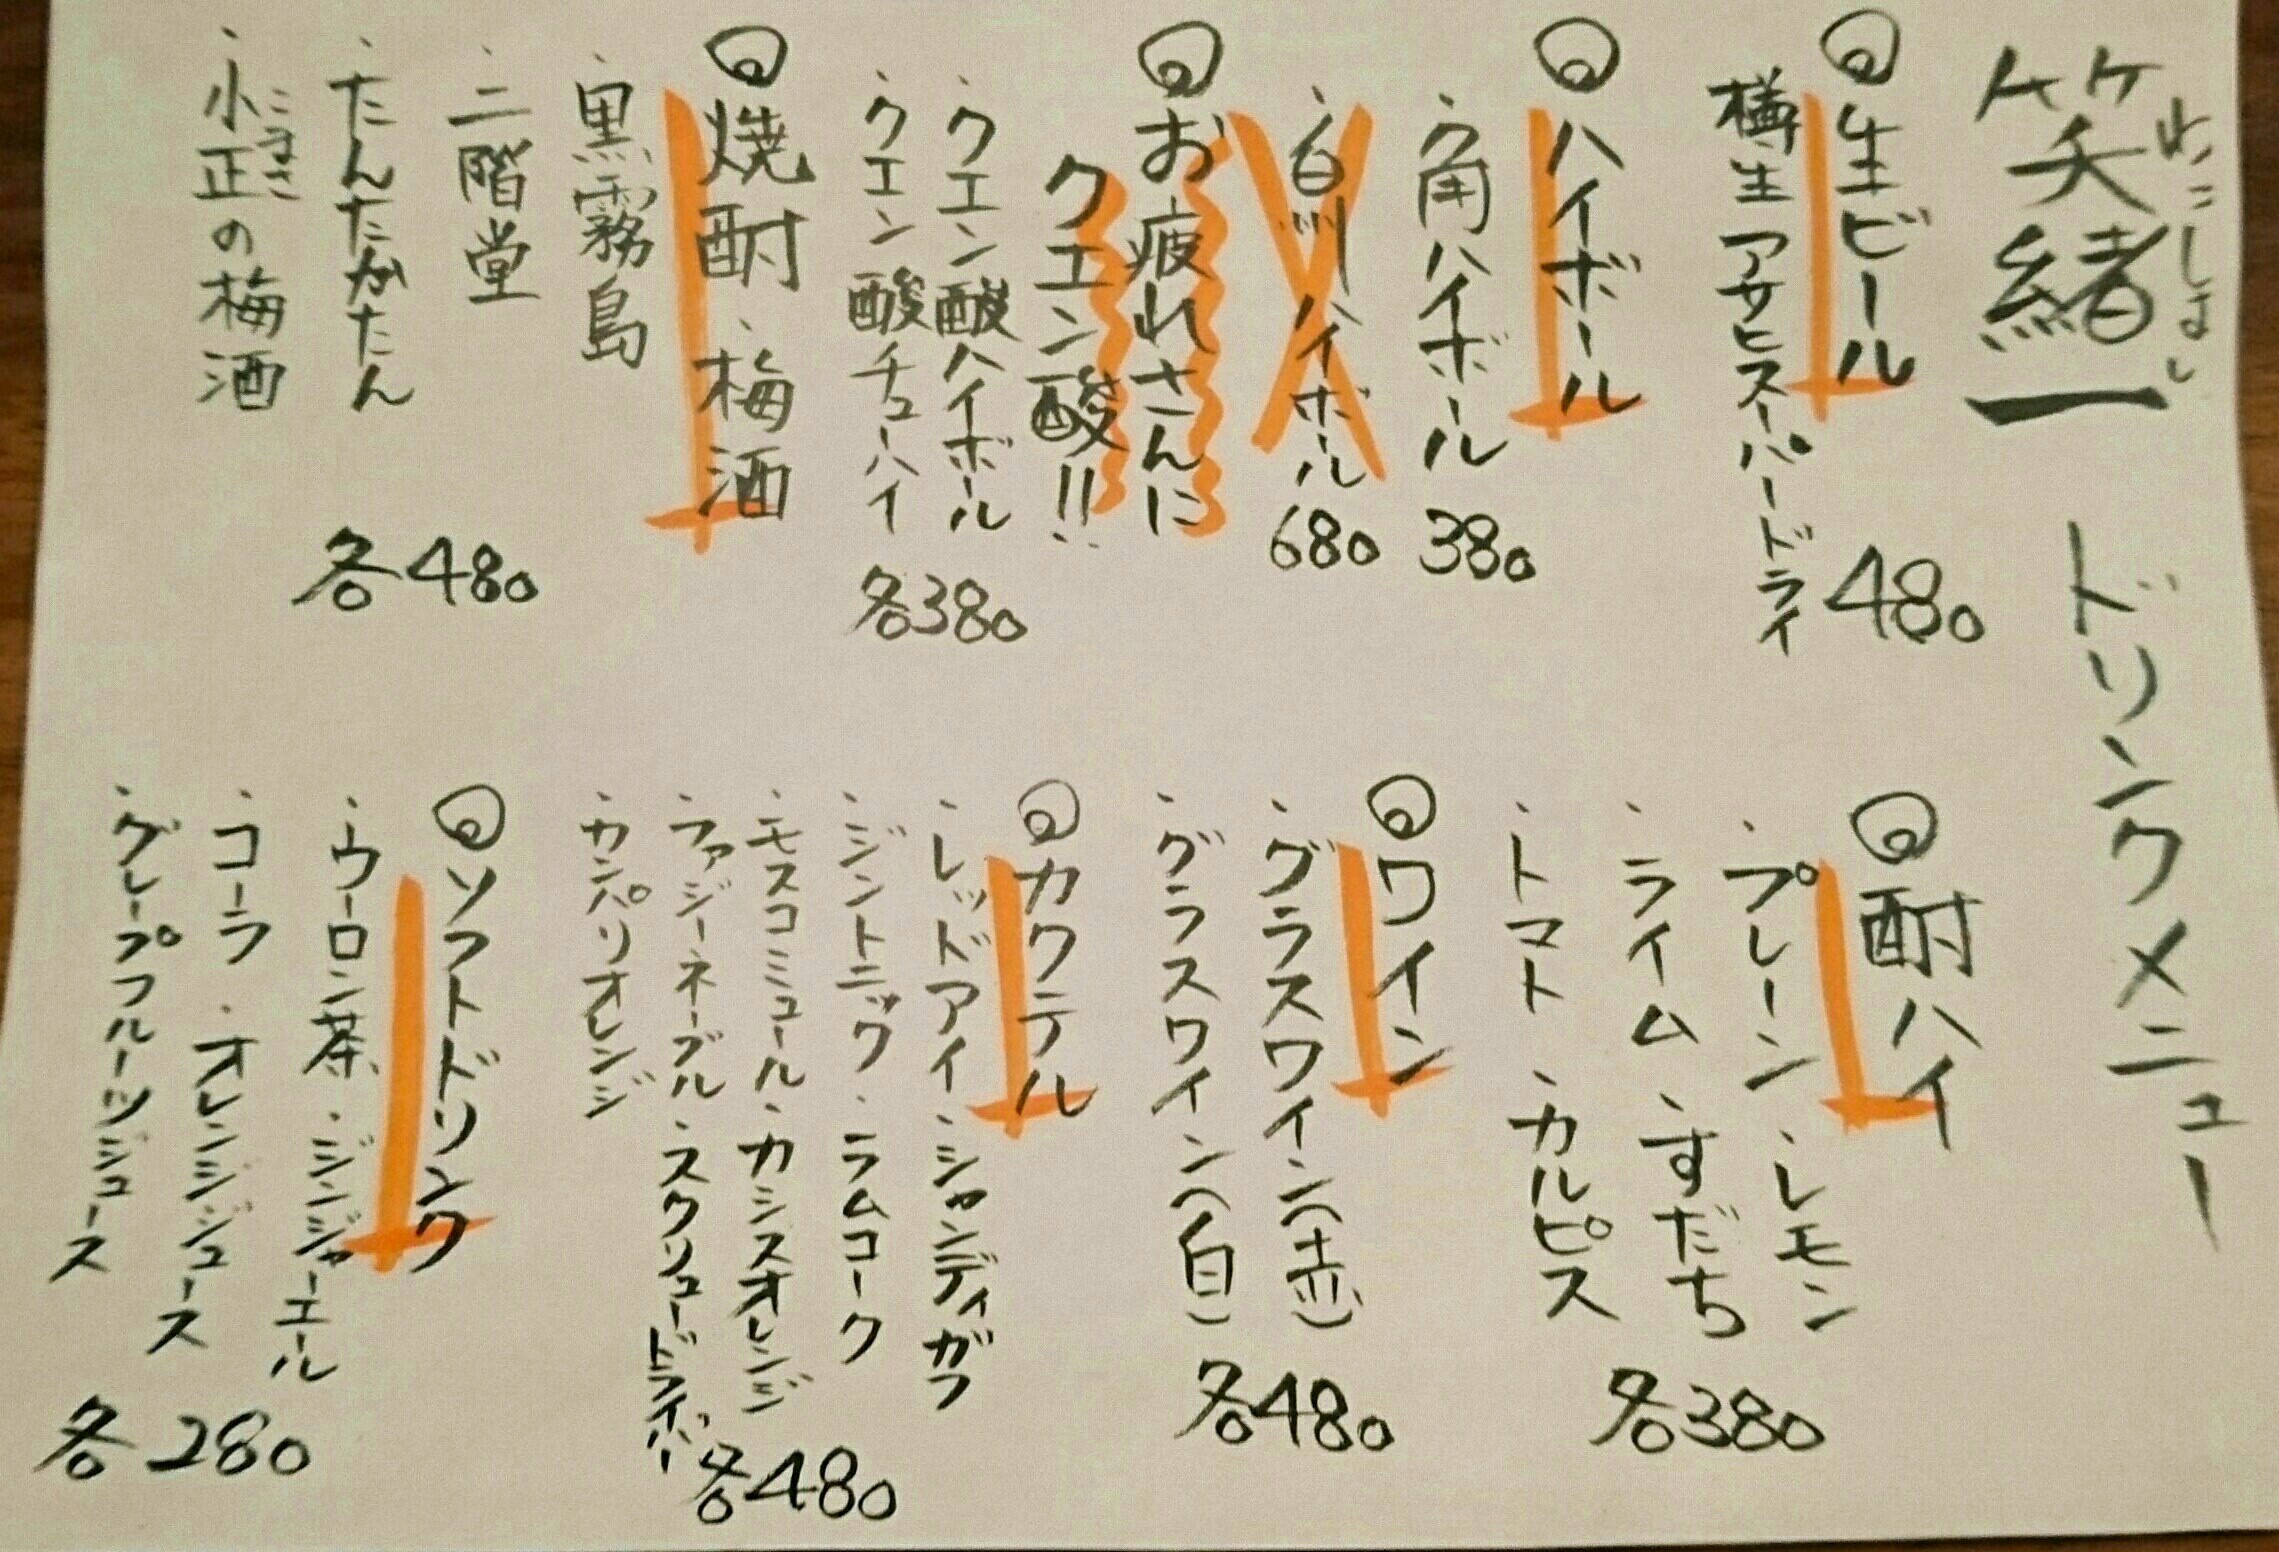 笑緒一 ドリンクメニュー
わっしょい
◎生ビール 480
樽生アサヒスーパードライ
◎ハイボール
・角ハイボール 380
・白州ハイボール 680
◎お疲れさんに
クエン酸!!
・クエン酸ハイボール
・クエン酸チューハイ
各380
◎焼酎、梅酒
・黒霧島
・二階堂
・たんたかたん
・小正の梅酒
こまさ
各480
◎酎ハイ
・プレーン・レモン
・ライム・すだち
・トマト・カルピス
各380
◎ワイン
・グラスワイン(赤)
・グラスワイン(白)
各480
◎カクテル
・レッドアイ・シャンディガフ
・ジントニック・ラムコーク
・モスコミュール・カシスオレンジ
・ファジーネーブル・スクリュードライバー
・カンパリオレンジ
各480
◎ソフトドリンク
・ウーロン茶・ジンジャーエール
・コーラ・オレンジジュース
・グレープフルーツジュース
各280